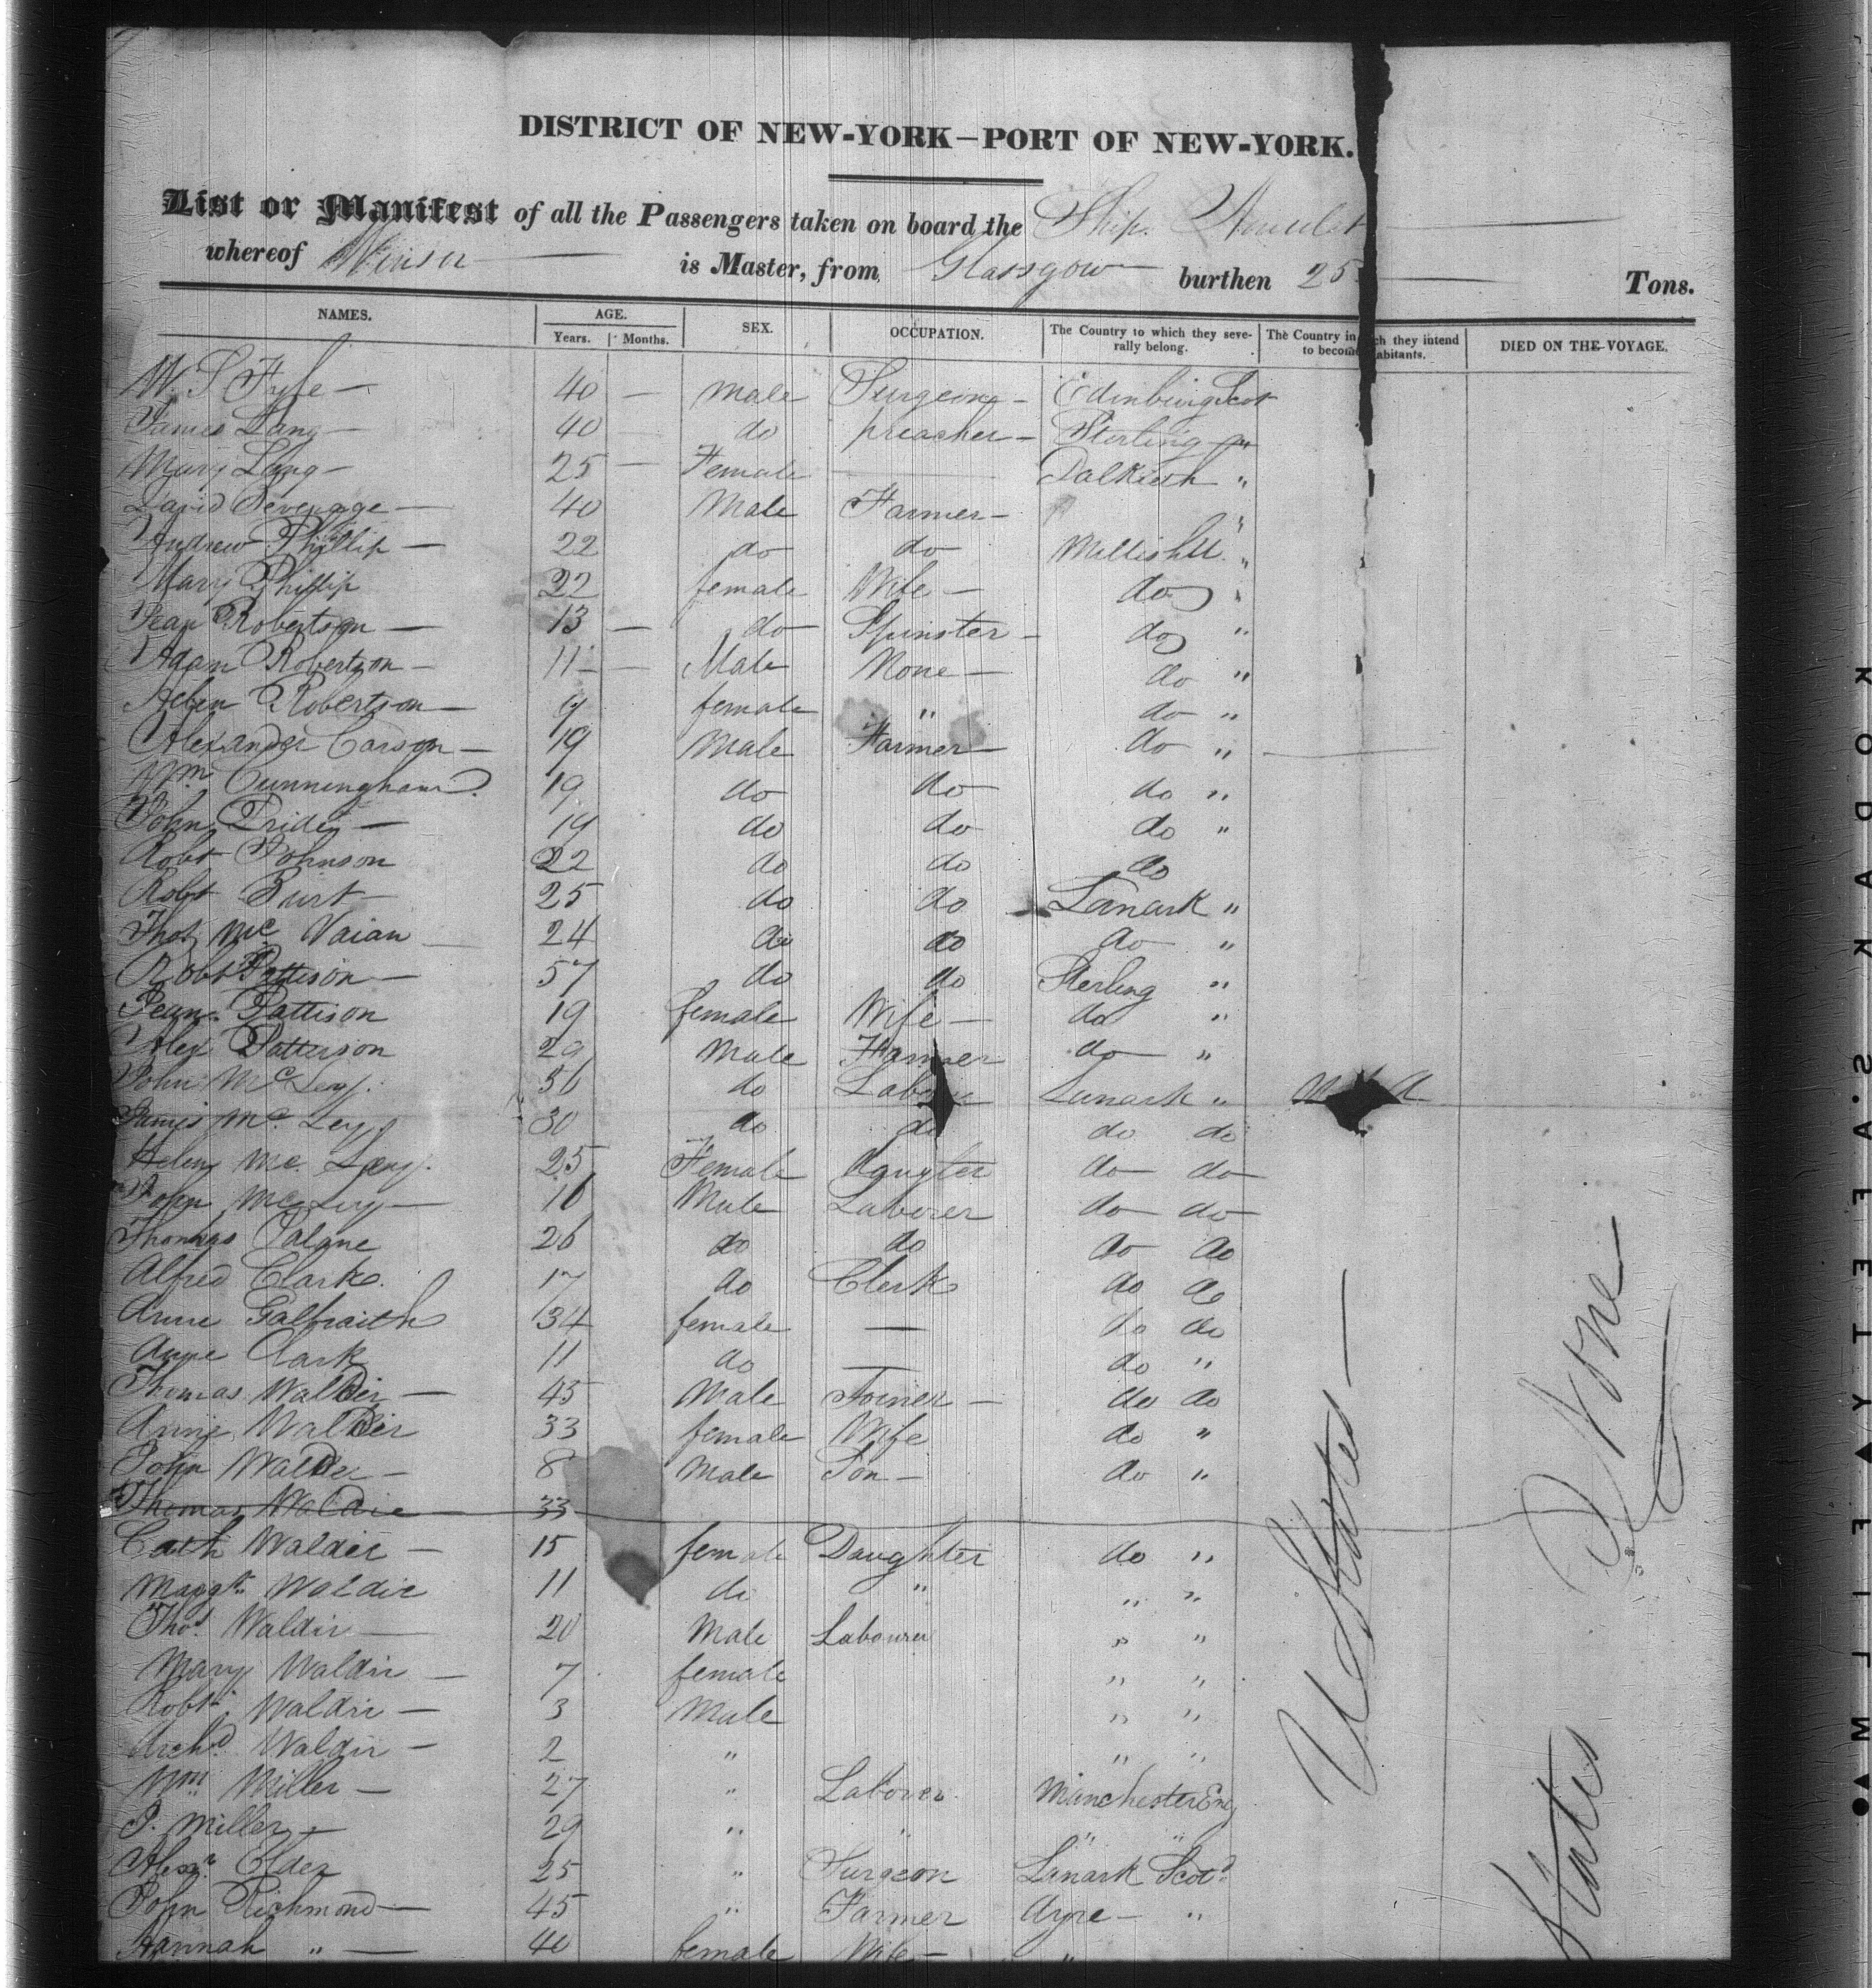 DISTRICT OF NEW-YORK—PORT OF NEW-YORK.
List or Manifest of all the Passengers taken on board the Ship Amulet
whereof Winsor is Master, from Glassgow burthen 25 Tons.
NAMES. AGE. Years. Months. SEX. OCCUPATION. The Country to which they severally belong. The Country in ch they intend to becom abitants. DIED ON THE VOYAGE.
W. S Fyfe — 40 — male Surgeon — Edinburg Scot
James Lang — 40 — do preacher — Sterling "
Mary Lang — 25 — Female — Dalkieth "
David — 40 Male Farmer — "
Andrew Phillip — 22 do do "
Mary Phillip 22 female Wife — do "
Jean Robertson — 13 — do Spinster — do "
Adam Robertson — 11 — Male None — do "
Helen Robertson — 9 female " do "
Alexander Carson — 19 Male Farmer — do "
Wm Cunningham 19 do do do "
John Pride — 19 do do do "
Robt Johnson 22 do do do
Robt Burt — 25 do do Lanark "
Thos Mc Vaian — 24 do do do "
Robt Pattison — 57 do do Sterling "
Jean Pattison 19 female Wife — do "
Alex Patterson 29 Male Farmer do "
John Mc Ley 56 do Labour Lanark "
James Mc Ley 30 do do do do
Helen Mc. Ley 25 Female daugter do do
John Mc Ley — 16 Male Laborer do do
Thomas 26 do do do do
Alfred Clark 17 do Clerk do do
Anne Galbraith 34 female — do do
Anne Clark 11 do — do "
Thomas Waldir — 45 Male Joiner — do do
Anne Waldir 33 female Wife do "
John Walder — 8 Male Son — do "
Thomas Waldie 33
Cath Waldir — 15 female Daughter do "
Magt. Waldie 11 do " " "
Thos. Waldir — 20 Male Labourer " "
Mary Waldir — 7 female " "
Robt. Waldir — 3 Male " "
Archd Waldir — 2 " " "
Wm Miller — 27 " Laborer Manchester Eng
P. Miller — 29 " " " "
Alexr. Elder 25 " Surgeon Lanark Scotd.
John Richmond — 45 " Farmer Ayre — "
Hannah " — 40 female Wife — "
U States —
None
States
KODAK S.A.F.E.T.Y. FILM